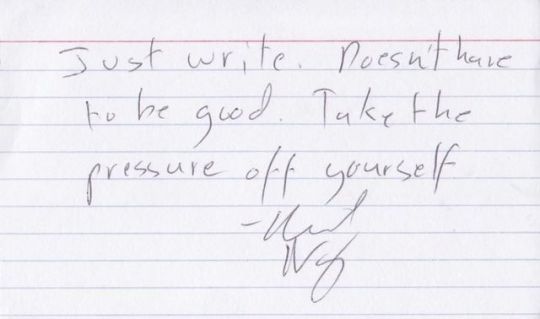 Just write. Doesn't have
to be good. Take the
pressure off yourself